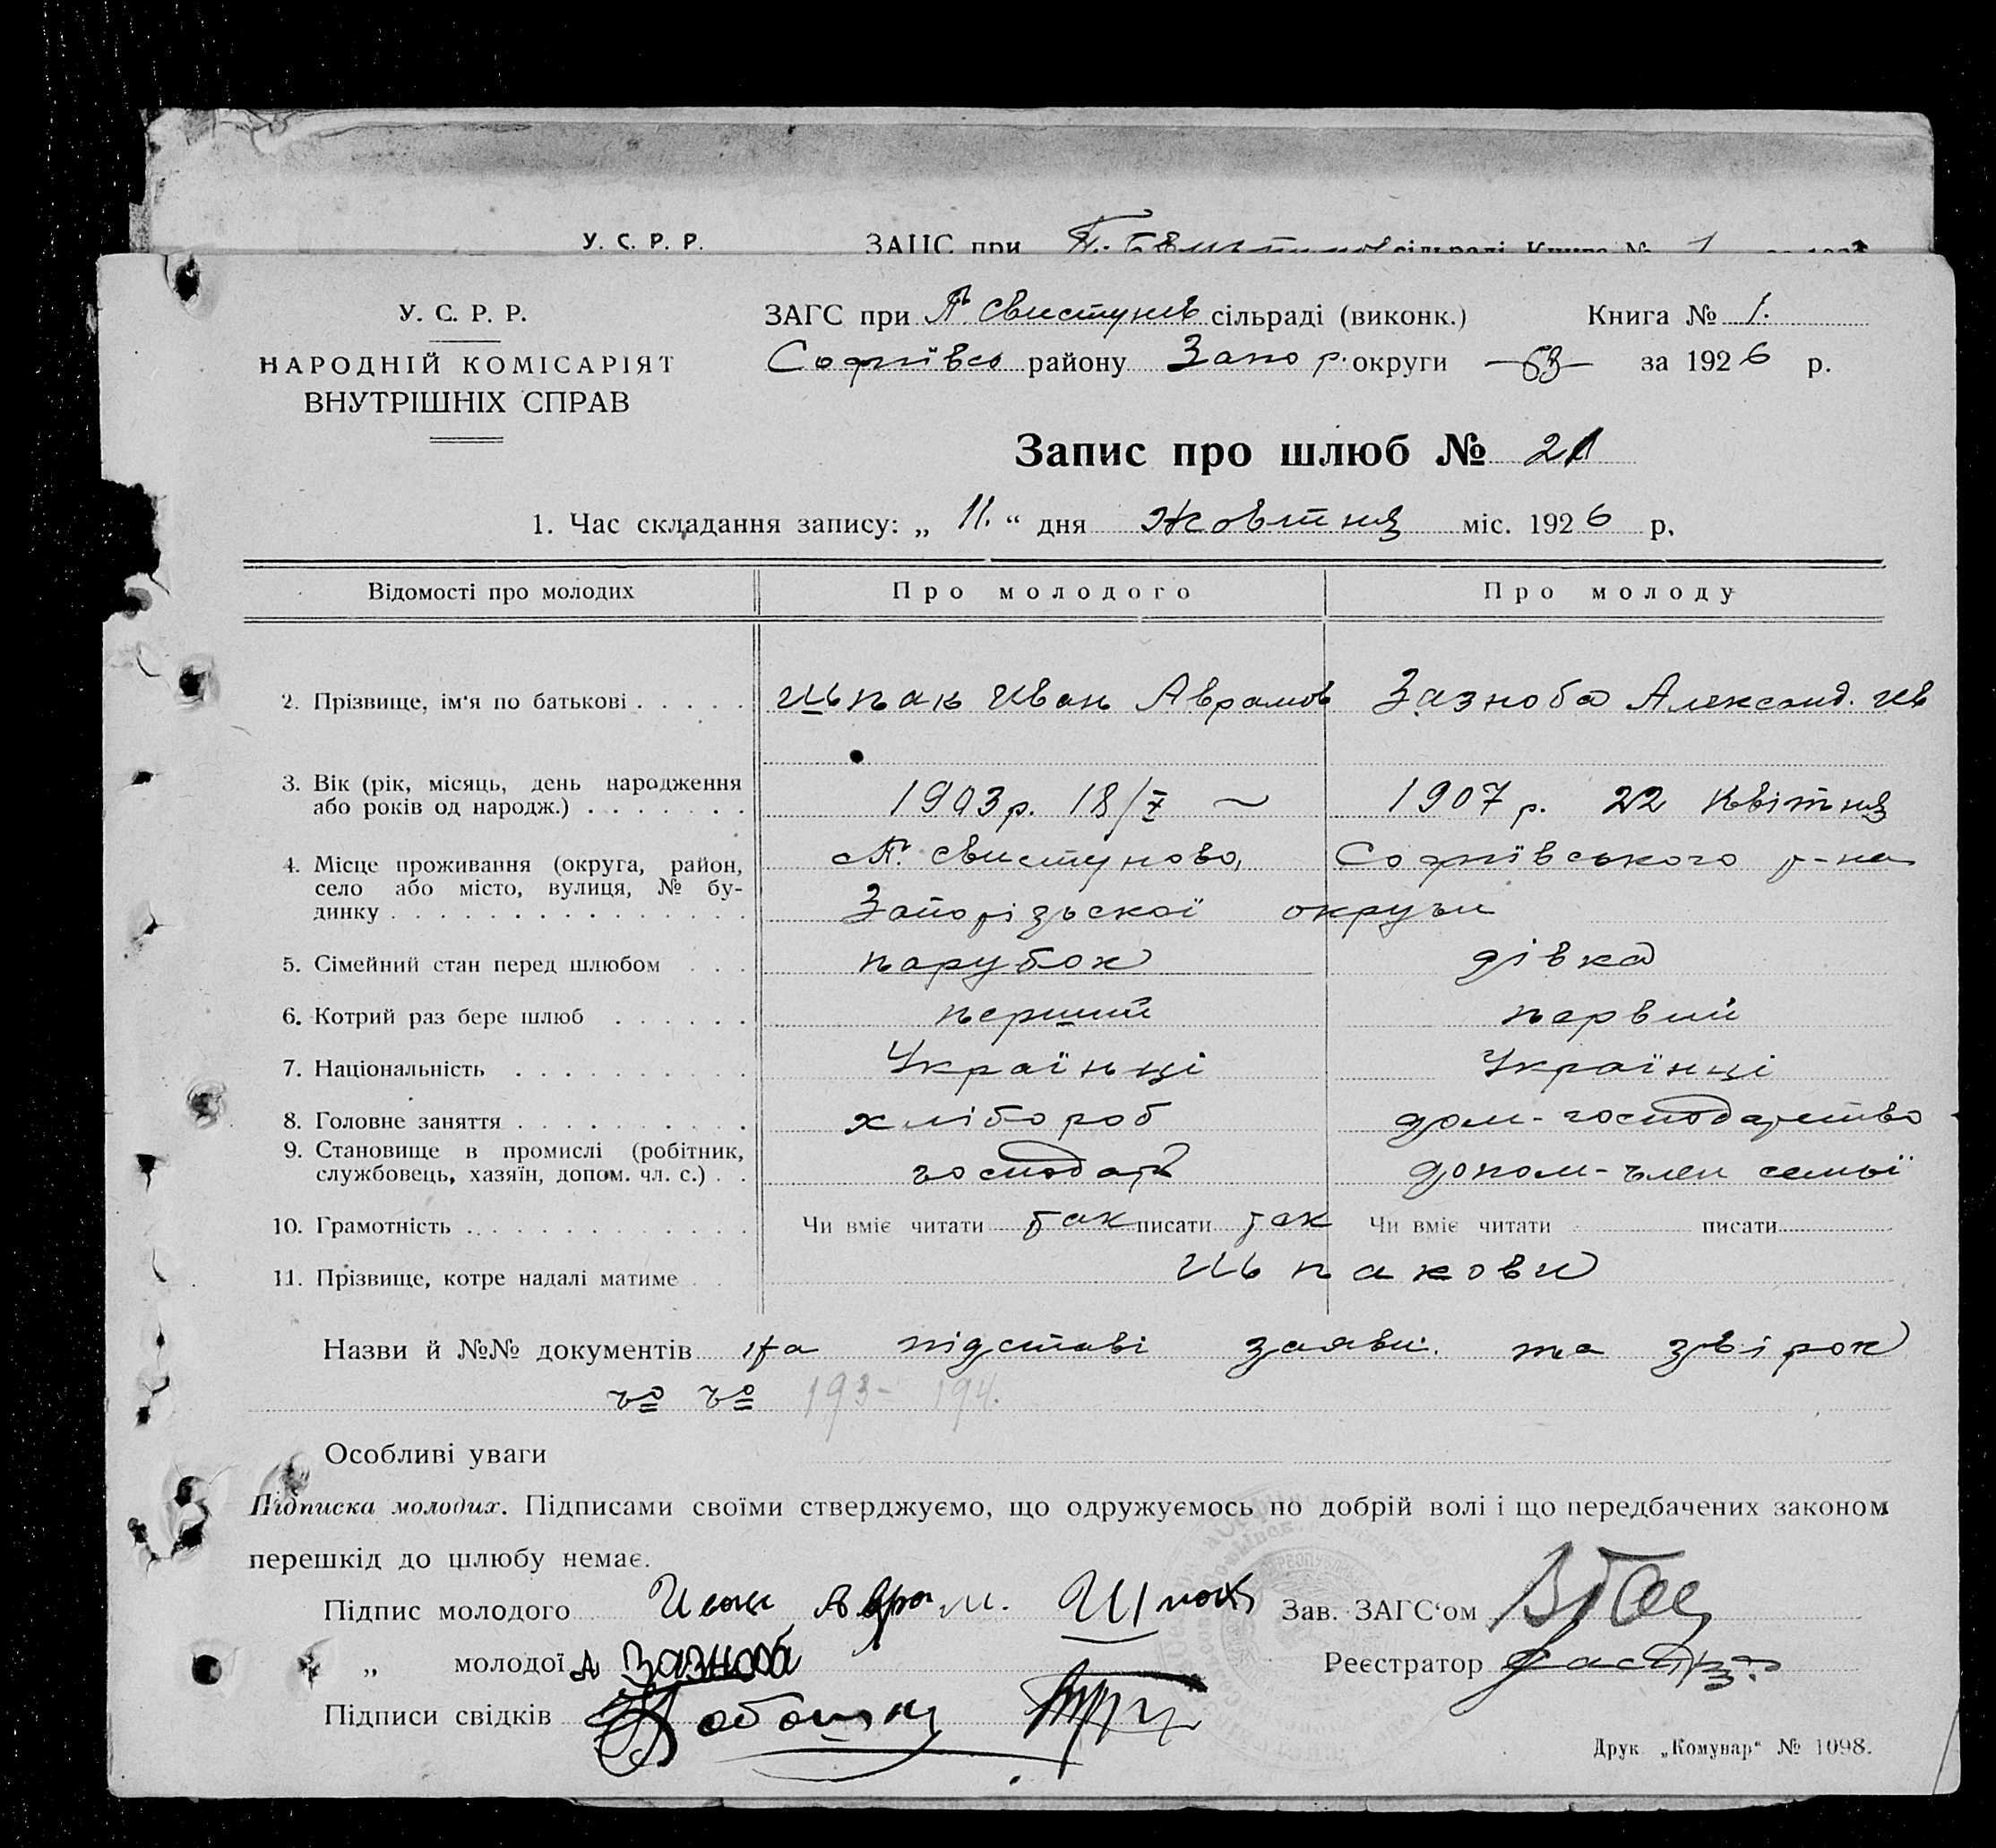 У. С. Р. Р. ЗАГС при сільраді Книга № 1
У. С. Р. Р.
НАРОДНІЙ КОМІСАРІЯТ
ВНУТРІШНІХ СПРАВ
ЗАГС при П. Свистунів сільраді (виконк.) Книга № 1.
Софіївсь району Запор. округи —53— за 1926 р.
Запис про шлюб № 21
1. Час складання запису: „ 11. “ дня Жовтня міс. 1926 р.
Відомості про молодих Про молодого Про молоду
2. Прізвище, ім'я по батькові . . . . . Шпак Иван Аврамов Зазноба Александ. Ив
3. Вік (рік, місяць, день народження
або років од народж.) . . . . . . . 1903 р. 18/X ~ 1907 р. 22 Квітня
4. Місце проживання (округа, район, П. Свистуново, Софіївського р-на
село або місто, вулиця, № бу-
динку . . . . . . . . . . . . . . . Запорізьскої округи
5. Сімейний стан перед шлюбом . . . парубок дівка
6. Котрий раз бере шлюб . . . . . . перший первий
7. Національність . . . . . . . . . . Українці Українці
8. Головне заняття . . . . . . . . . . хлібороб дом-господарство
9. Становище в промислі (робітник,
службовець, хазяїн, допом. чл. с.) . . господарь допом-член семьї
10. Грамотність . . . . . . . . . . . . Чи вміє читати так писати так Чи вміє читати писати
11. Прізвище, котре надалі матиме . . Шпакови
Назви й №№ документів На підставі заяви та звірок
№ № 193- 194.
Особливі уваги
Підписка молодих. Підписами своїми стверджуємо, що одружуємось по добрій волі і що передбачених законом
перешкід до шлюбу немає.
Підпис молодого Иван Аврам. Шпак Зав. ЗАГС'ом
„ молодої А Зазноба Реєстратор
Підписи свідків
Друк „Комунар“ № 1098.